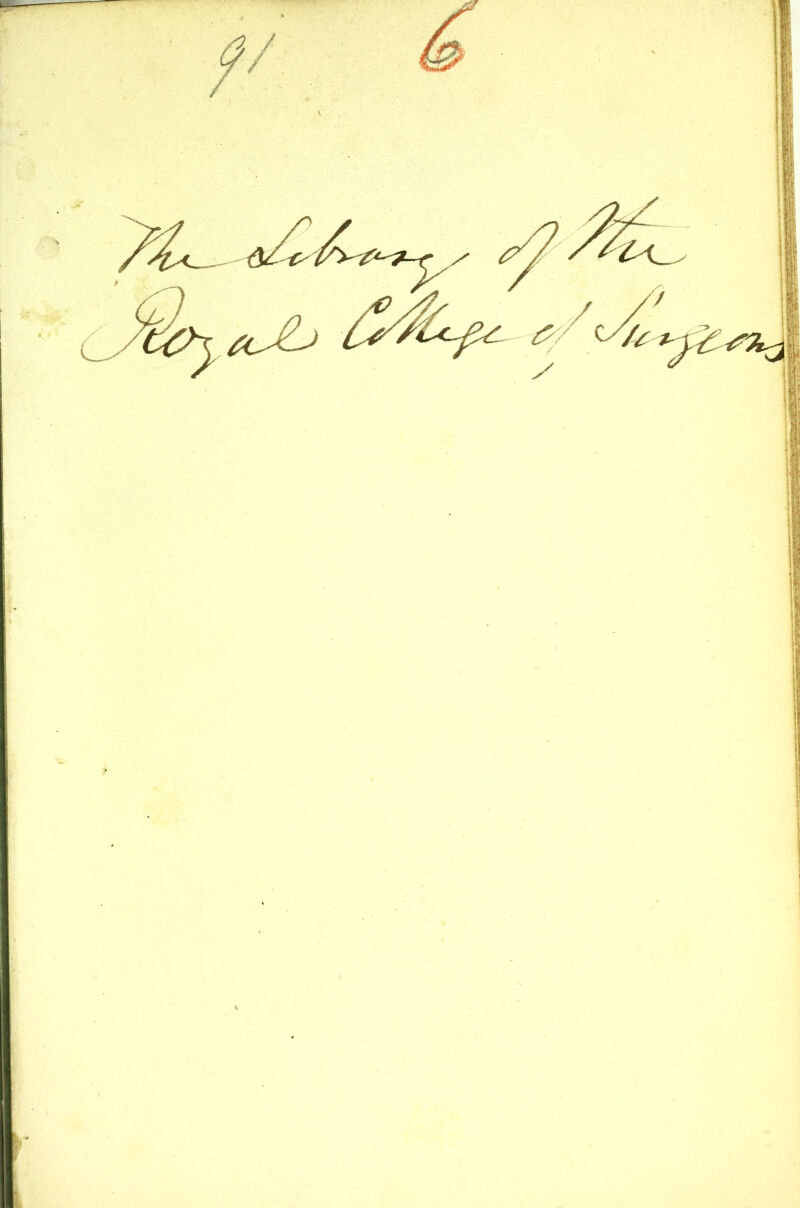 91 6
The Library of the
Royal College of Surgeons